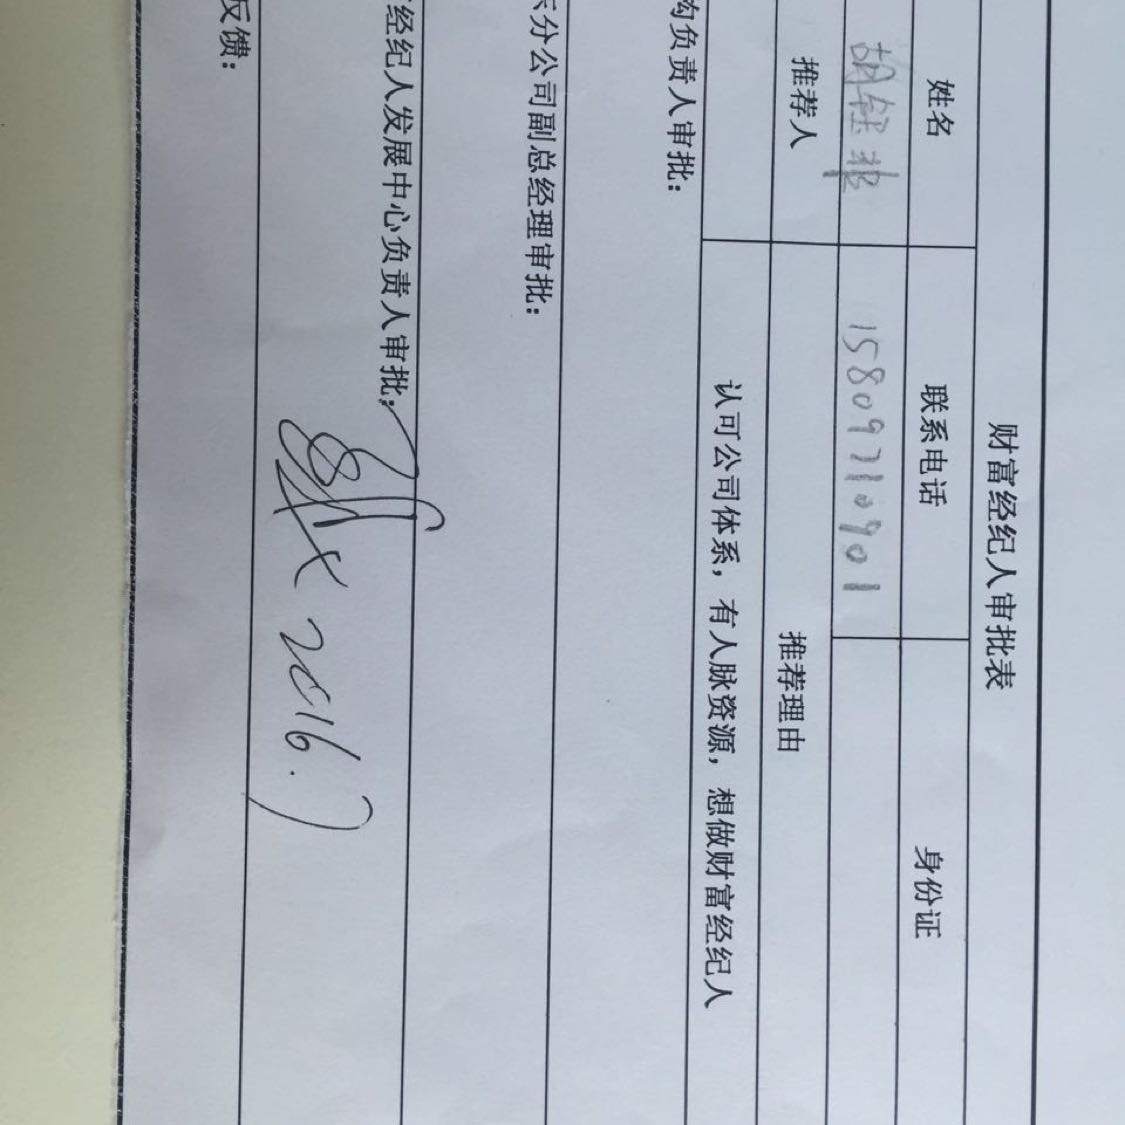 财富经纪人审批表
姓名 联系电话 身份证
15809710901
推荐人 推荐理由
认可公司体系，有人脉资源，想做财富经纪人
负责人审批：
分公司副总经理审批：
经纪人发展中心负责人审批：
2016.7
反馈：